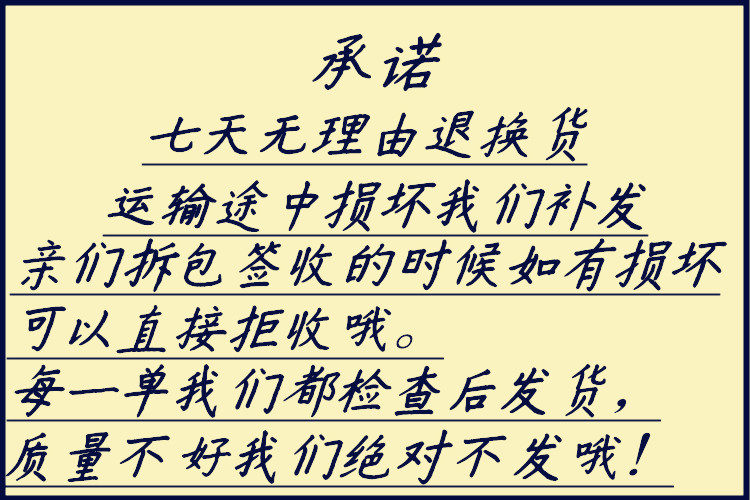 承诺
七天无理由退换货
运输途中损坏我们补发
亲们拆包签收的时候如有损坏
可以直接拒收哦。
每一单我们都检查后发货，
质量不好我们绝对不发哦！